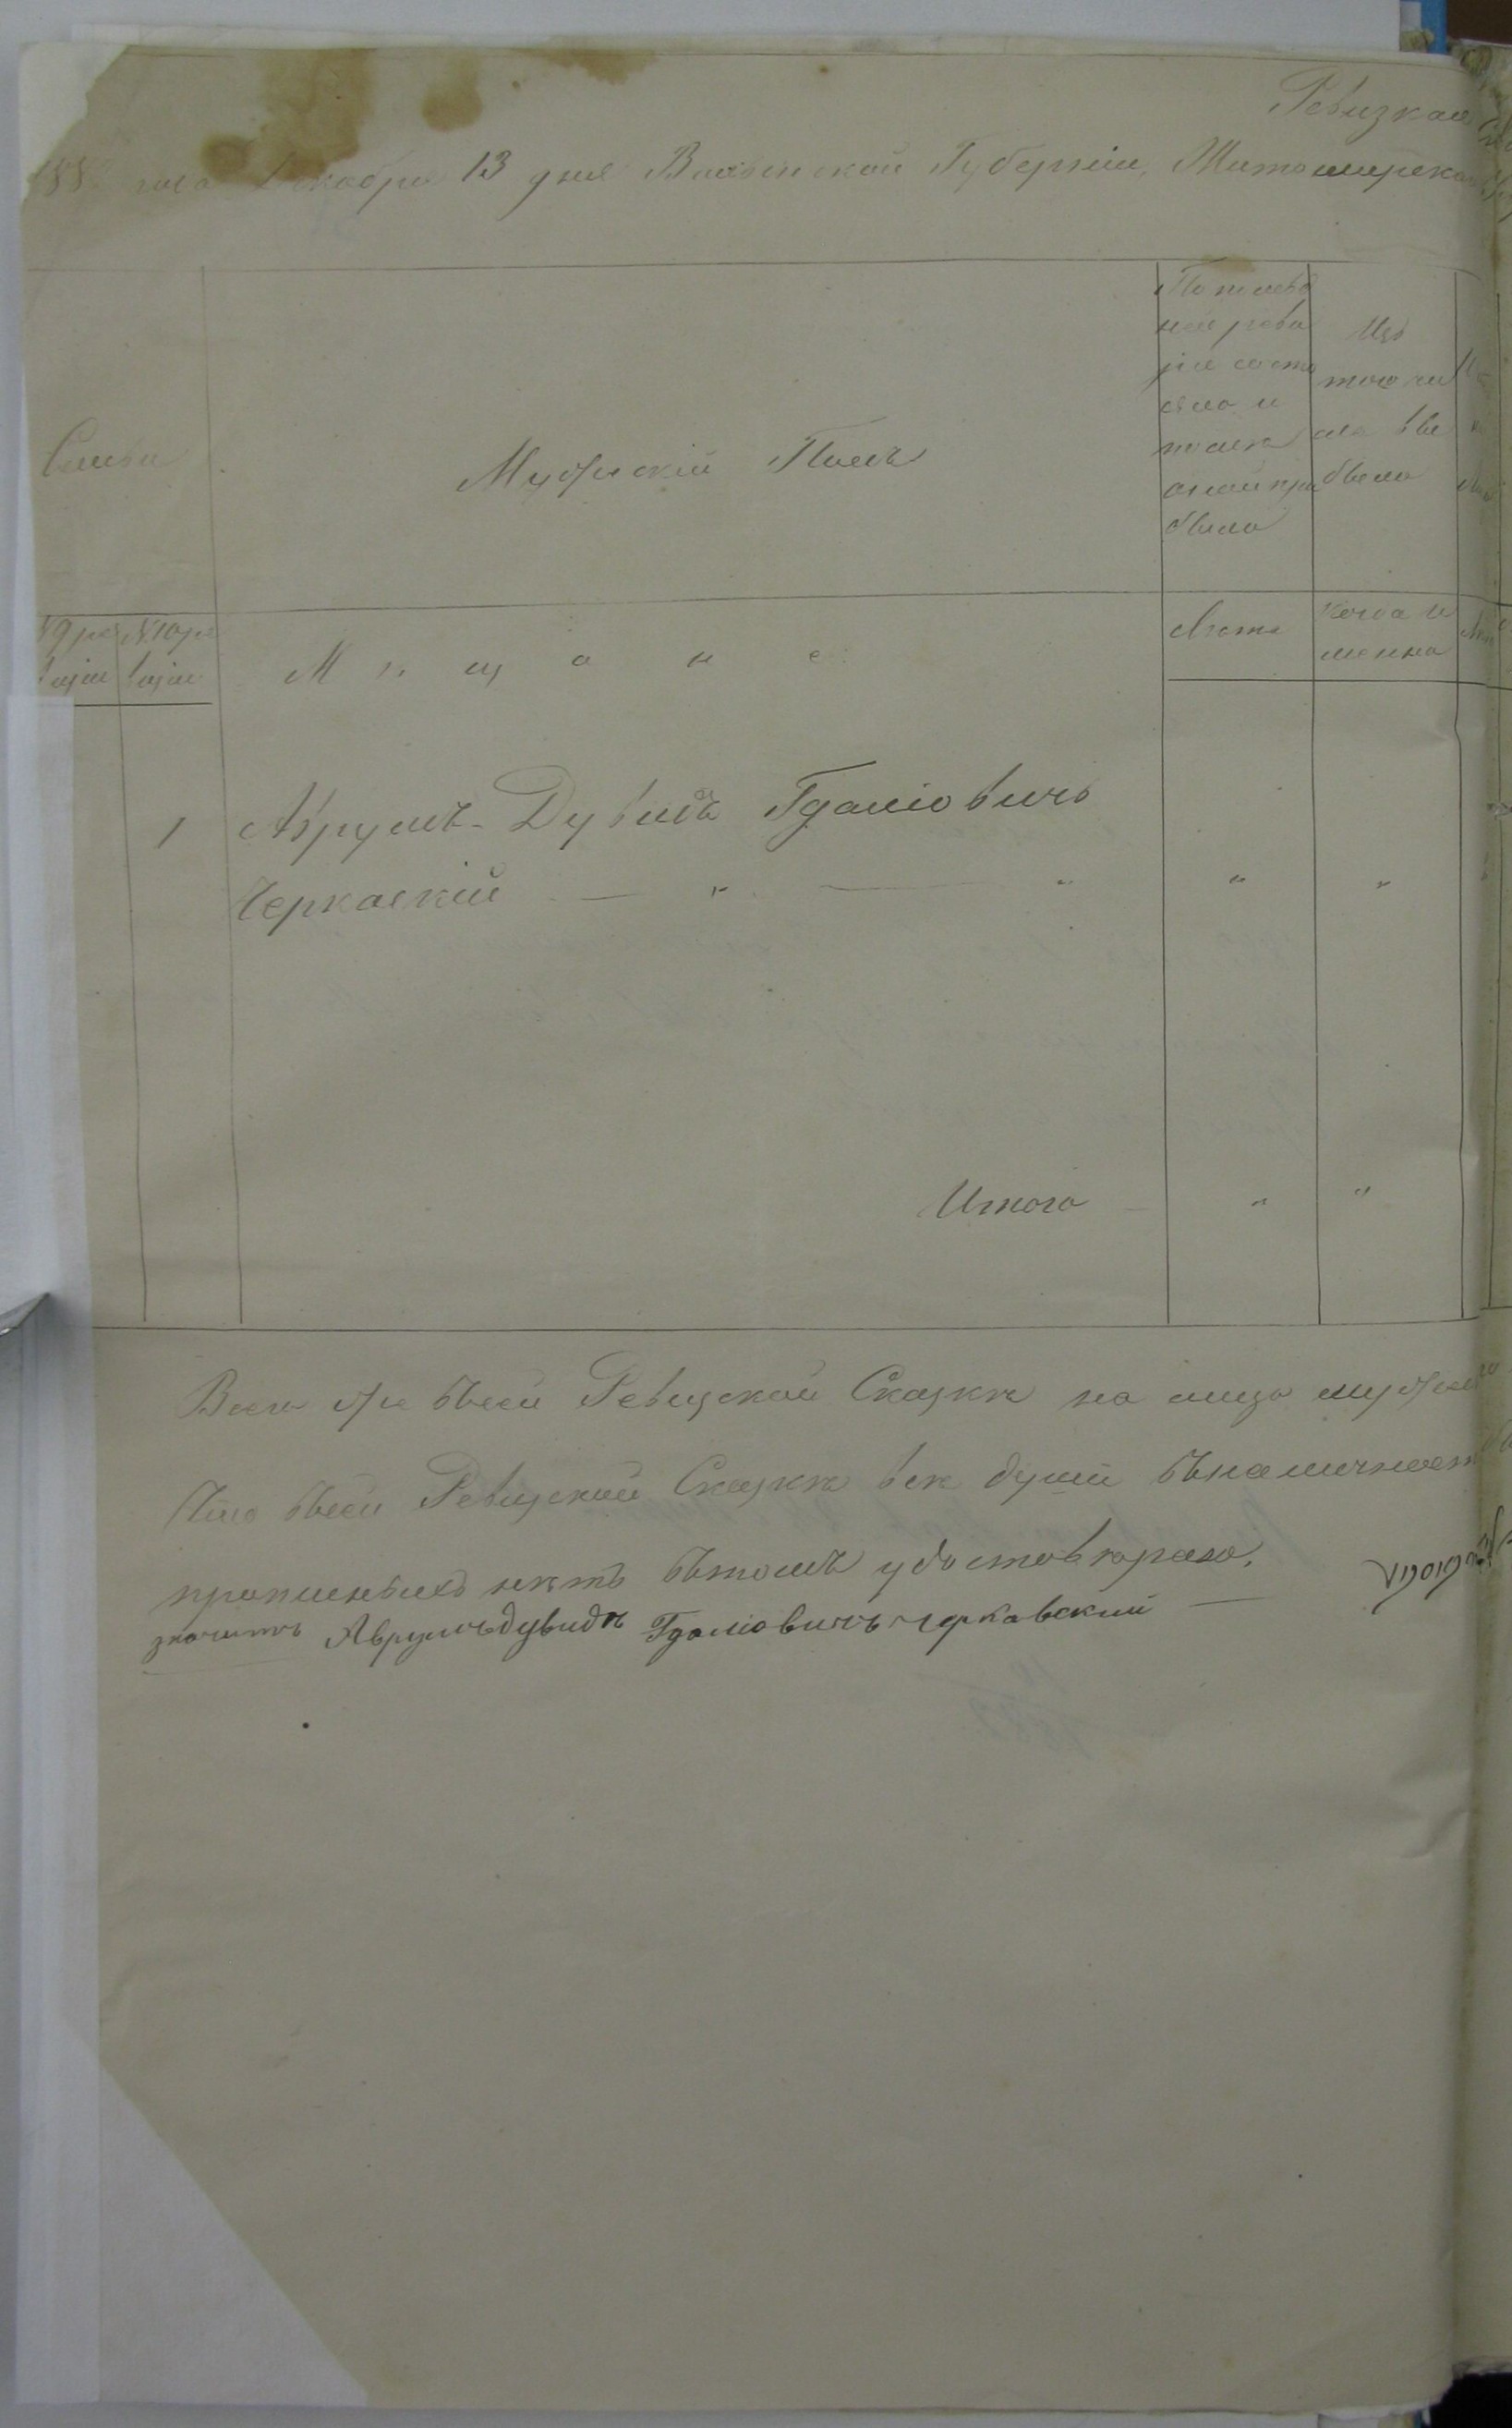 Ревизкая
188 года Декабря 13 дня Волынской Губерніи, Житомирска
Семьи
Мужескій Полъ
По послѣд
ней реви
зіи состо
яло и
послѣ
оной при
было
Изъ
того чи
сла вы
было
№ 9 ре
визіи
№ 10 ре
визіи
Мѣщане
Лѣта
Когда и
менно
1 Аврумъ-Дувидъ Гдаліовичъ
Черкаскій — " — " " "
Итого " "
Всего въ сей Ревизской Сказкѣ на лицо мужеска
Что въ сей Ревизской Сказкѣ всѣ души въ наличност
прописныхъ нѣтъ въ томъ удостовѣряю,
значитъ Аврумъ дувидъ Гдаліовичъ черкавский —